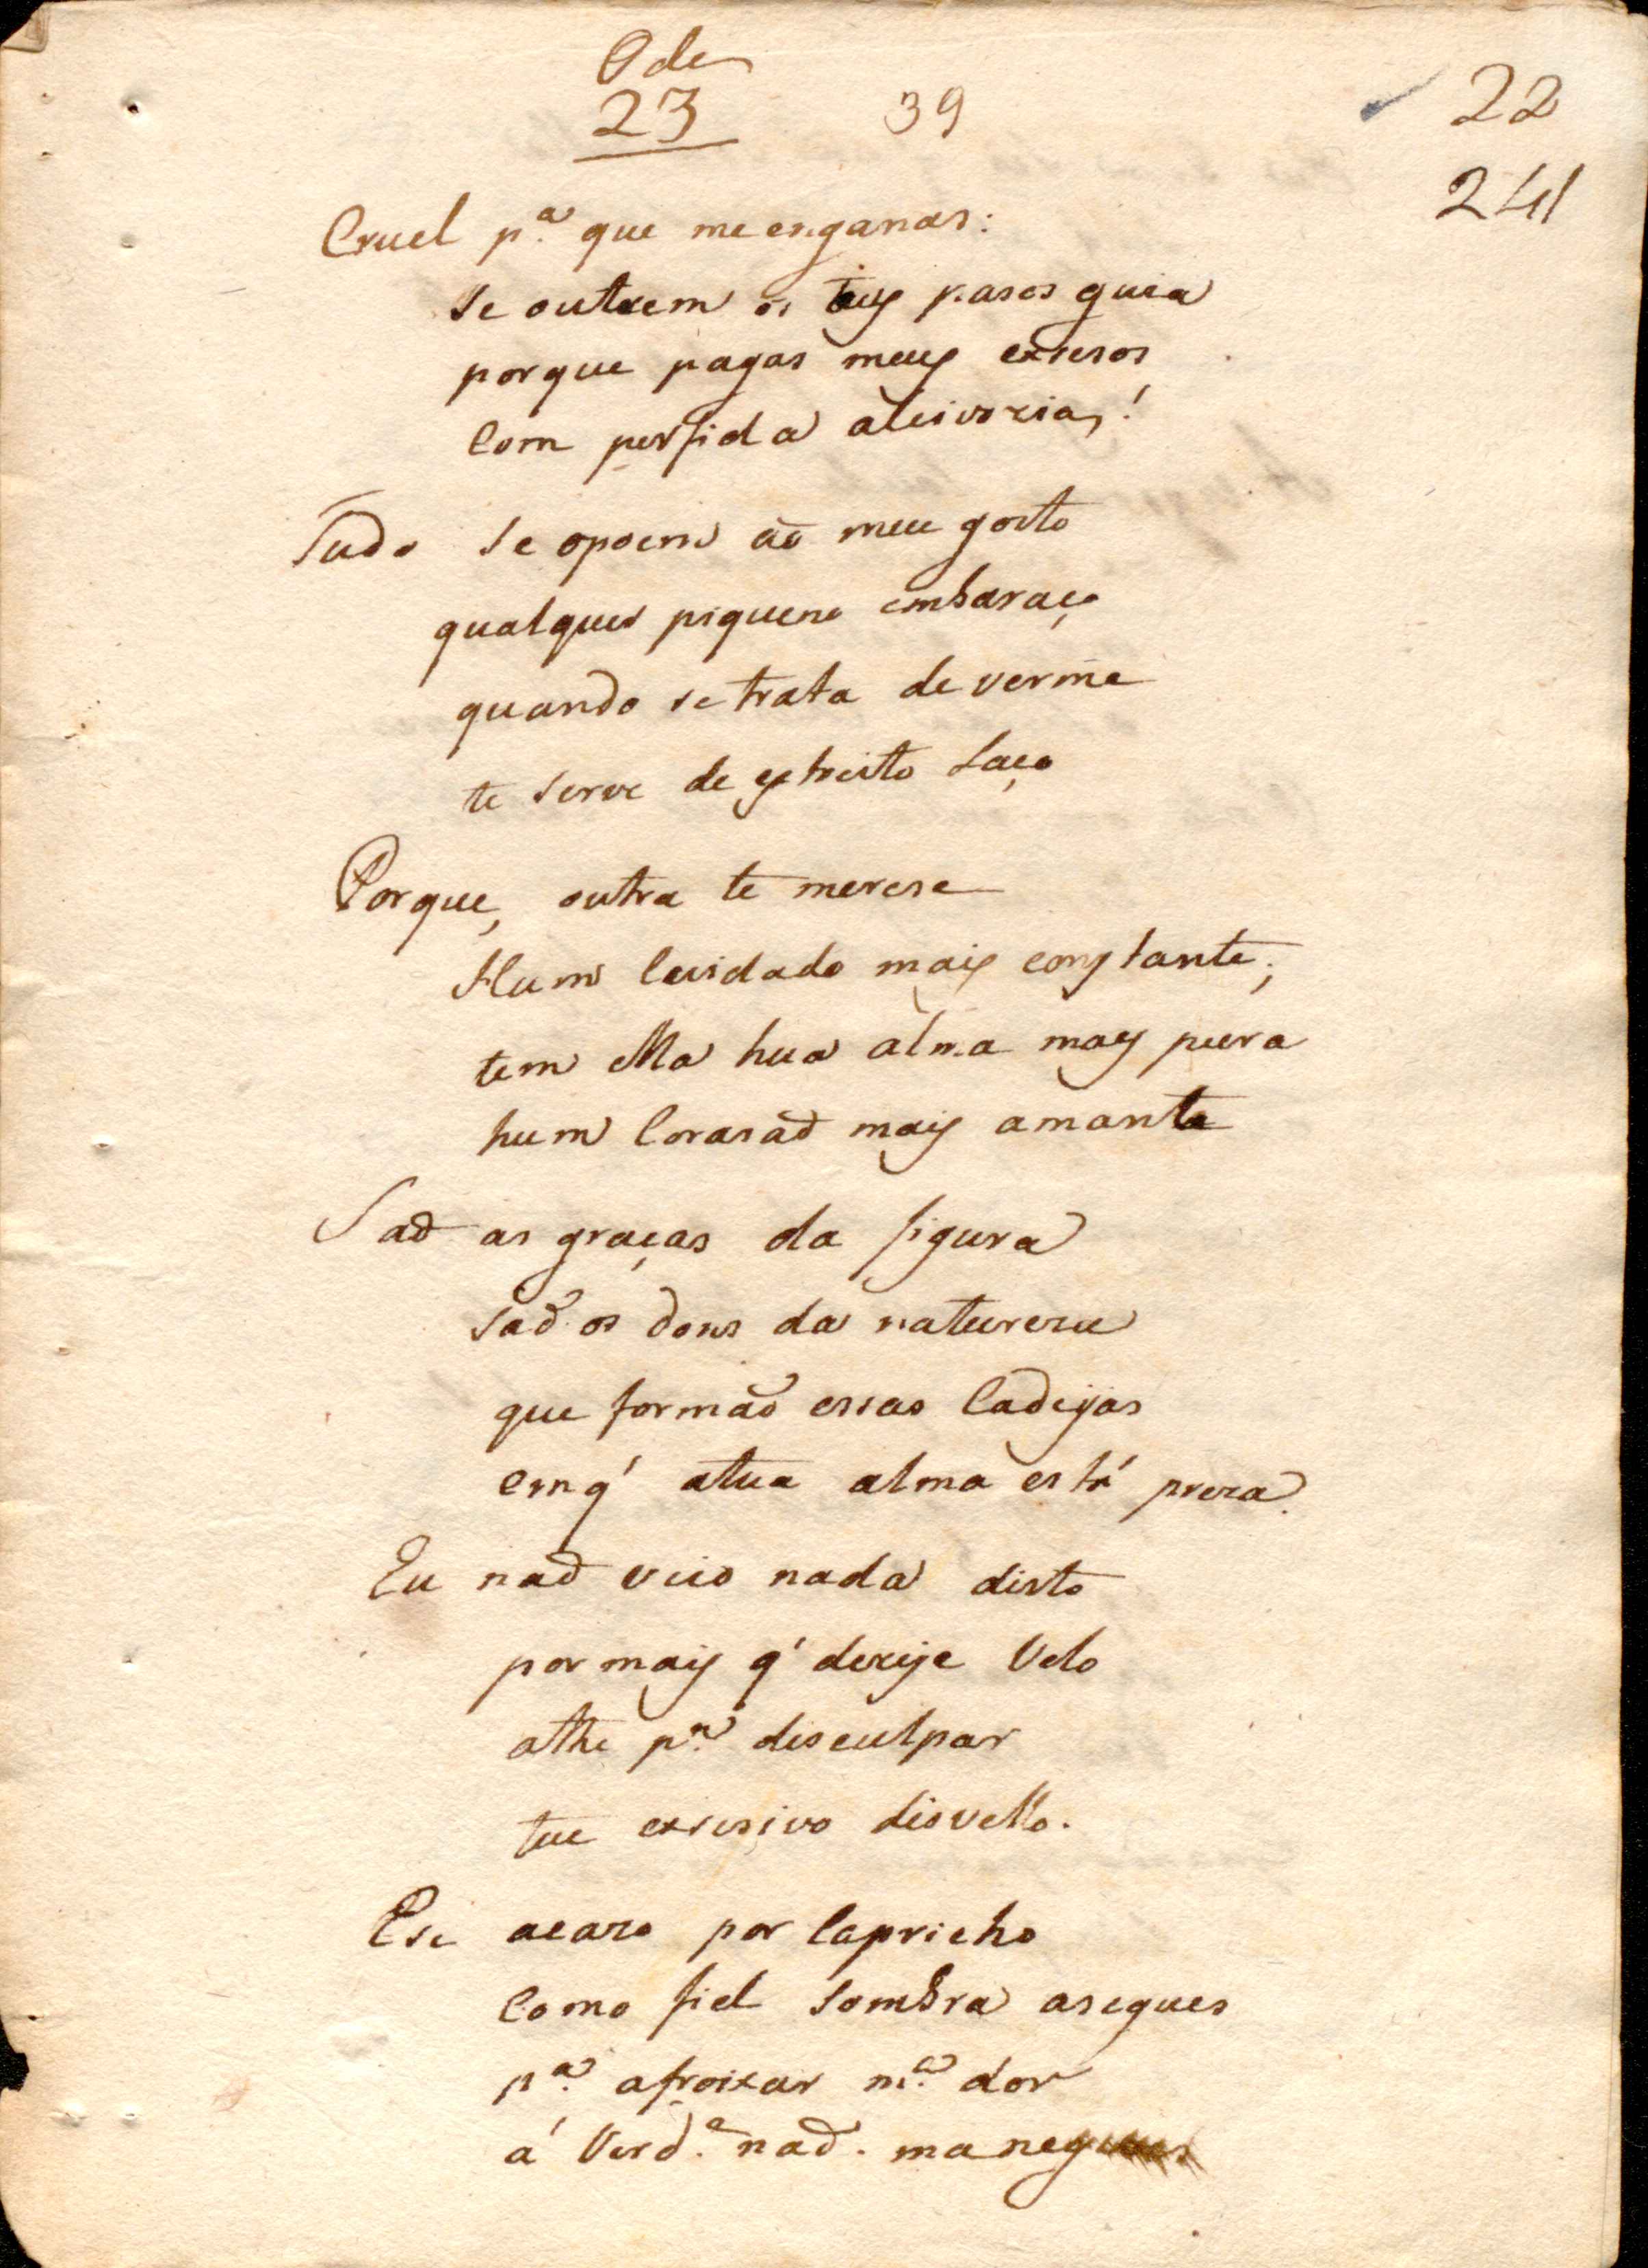 Ode
23 39 22
241
Cruel p.ª que me enganas:
Se outrem os teus pasos guia
porque pagas meus exsesos
Com perfida aleivozia,!
Tudo Se opoem ao meu gosto
qualquer piqueno embaraço
quando se trata de verme
te serve de estreito Laço
Porque, outra te merese
Hum Cuidado mais constante;
tem Ella hua alma mays pura
hum Corasaõ mais amante
Saõ as graças da figura
saõ os dons da natureza
que formaõ essas Cadeyas
emq' atua alma está preza.
Eu naõ veio nada disto
por mais q' dezeje Velo
athe p.ª disculpar
teu exsesivo disvello.
Ese acazo por Capricho
Como fiel Sombra asegues
p.ª afroixar m.ª dor
á Verd.e naõ. ma negues